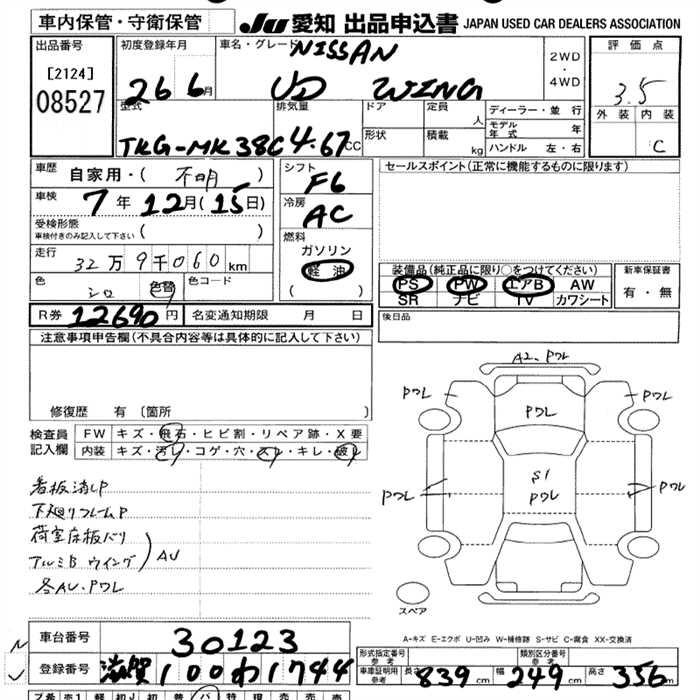 車内保管・守衛保管
JU 愛知 出品申込書 JAPAN USED CAR DEALERS ASSOCIATION
出品番号
[2124]
08527
初度登録年月
26 6月
車名・グレード
NISSAN
UD WING
2WD
・
4WD
評価点
3.5
外装 内装
C
型式
TKG-MK38C
排気量
4.67CC
ドア
形状
定員
人
積載
kg
ディーラー・並行
モデル年式 年
ハンドル 左・右
車歴
自家用・( 不明 )
車検
7年12月(15日)
受検形態
車検付きのみ記入して下さい ( )
走行
32万9千060km
色
シロ
色替
色コード
シフト
F6
冷房
AC
燃料
ガソリン
軽油
( )
セールスポイント(正常に機能するものに限ります)
装備品(純正品に限り○をつけてください)
PS PW エアB AW
SR ナビ TV カワシート
新車保証書
有・無
R券 12690円
名変通知期限 月 日
後日品
注意事項申告欄(不具合内容等は具体的に記入して下さい)
修復歴 有 〔箇所 〕
検査員
記入欄
FW キズ・飛石・ヒビ割・リペア跡・X要
内装 キズ・汚レ・コゲ・穴・スレ・キレ・破レ
看板消しP
下廻りフレームP
荷室床板バリ
アルミB ウイング
AU
各AU・Pワレ
A2、Pワレ
Pワレ
Pワレ
Pワレ
S1
Pワレ
Pワレ
Pワレ
スペア
A-キズ E-エクボ U-凹み W-補修跡 S-サビ C-腐食 XX-交換済
車台番号
30123
登録番号
滋賀100わ1744
形式指定番号
参考
類別区分番号
参考
車庫証明用
参考
長さ 839cm 幅 249cm 高さ 356cm